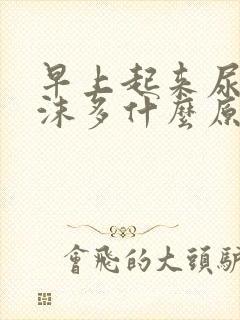 早上起来尿
沫多什麼原
會飛的大頭驢